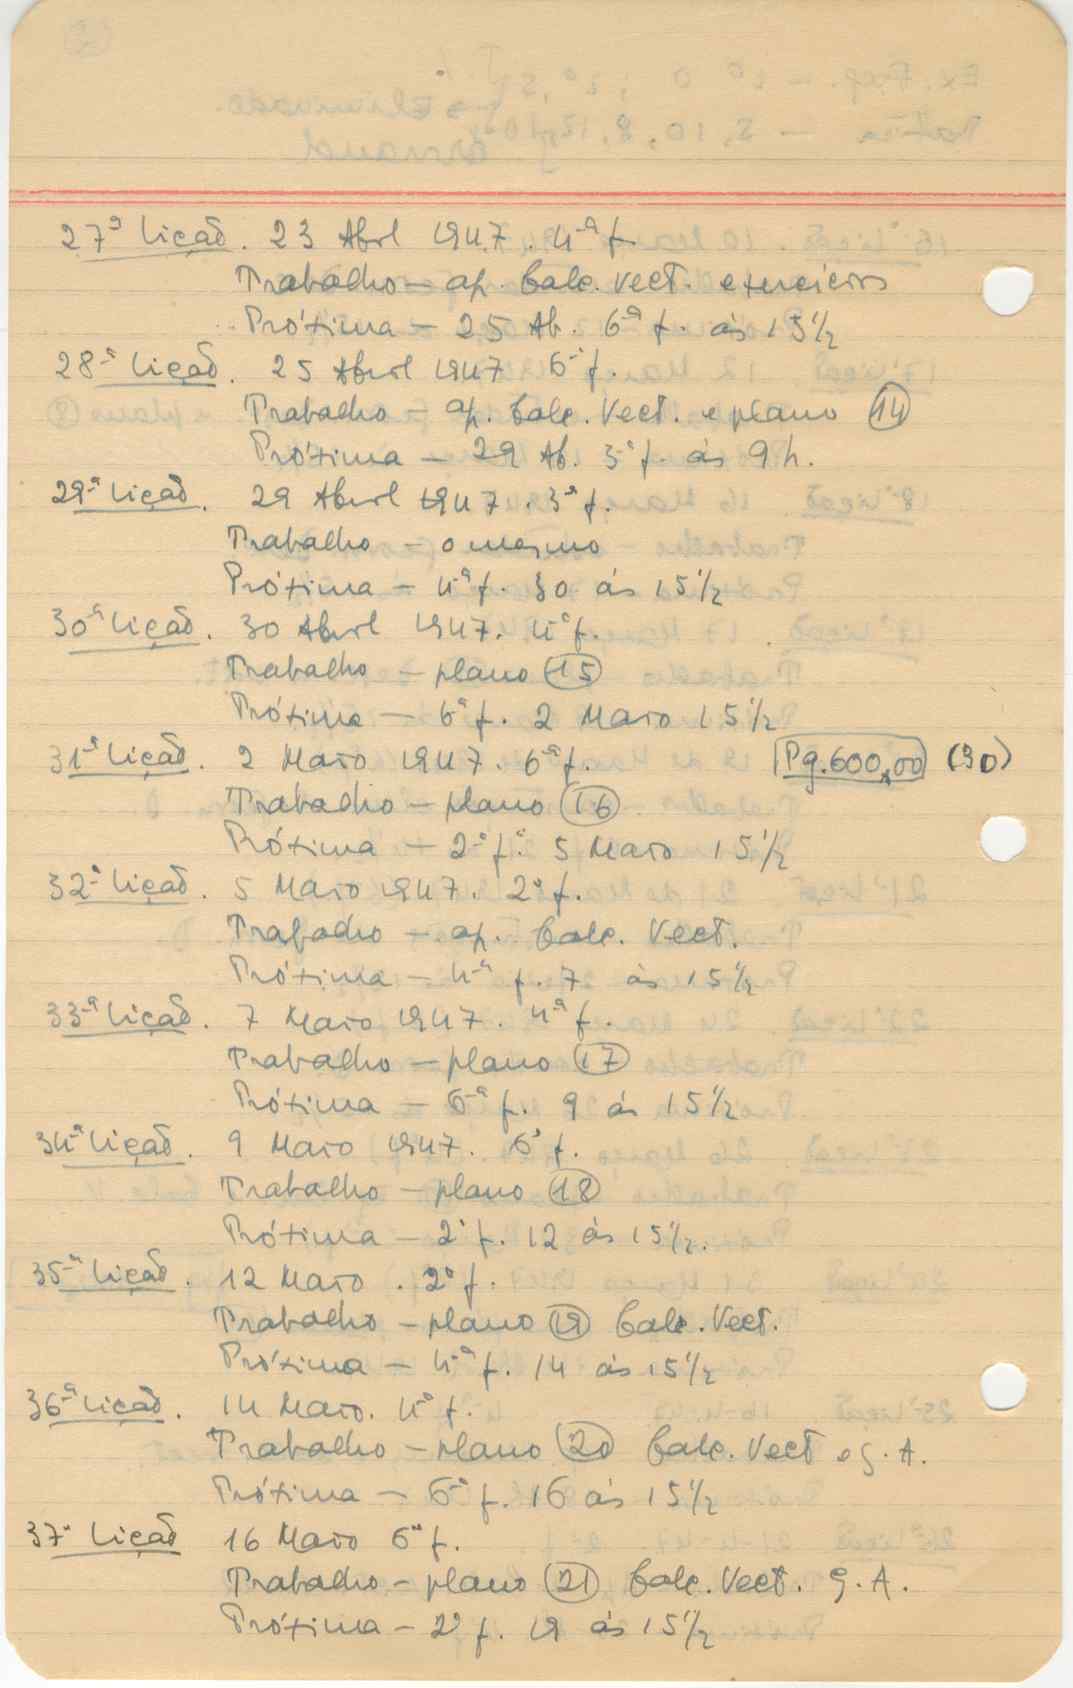 27ª Lição. 23 Abril 1947. 4ª f.
Trabalho — ap. Calc. Vect. exercicios
Próxima — 25 Ab. 6ª f. ás 15½
28ª Lição. 25 Abril 1947 6ª f.
Trabalho — ap. Calc. Vect. e plano 14
Próxima — 29 Ab. 3ª f. ás 9 h.
29ª Lição. 29 Abril 1947. 3ª f.
Trabalho — o mesmo
Próxima — 4ª f. 30 ás 15½
30ª Lição. 30 Abril 1947. 4ª f.
Trabalho — plano 15
Próxima — 6ª f. 2 Maio 15½
31ª Lição. 2 Maio 1947. 6ª f. Pg. 600,00 (30)
Trabalho — plano 16
Próxima — 2ª fª 5 Maio 15½
32ª Lição. 5 Maio 1947. 2ª f.
Trabalho — ap. Calc. Vect.
Próxima — 4ª f. 7 ás 15½
33ª Lição. 7 Maio 1947. 4ª f.
Trabalho — plano 17
Próxima — 6ª f. 9 ás 15½
34ª Lição. 9 Maio 1947. 6ª f.
Trabalho — plano 18
Próxima — 2ª f. 12 ás 15½.
35ª Lição. 12 Maio. 2ª f.
Trabalho — plano 19 Calc. Vect.
Próxima — 4ª f. 14 ás 15½
36ª Lição. 14 Maio. 4ª f.
Trabalho — plano 20 Calc. Vect e G. A.
Próxima — 6ª f. 16 ás 15½
37ª Lição 16 Maio 6ª f.
Trabalho — plano 21 Calc. Vect. G. A.
Próxima — 2ª f. 19 ás 15½